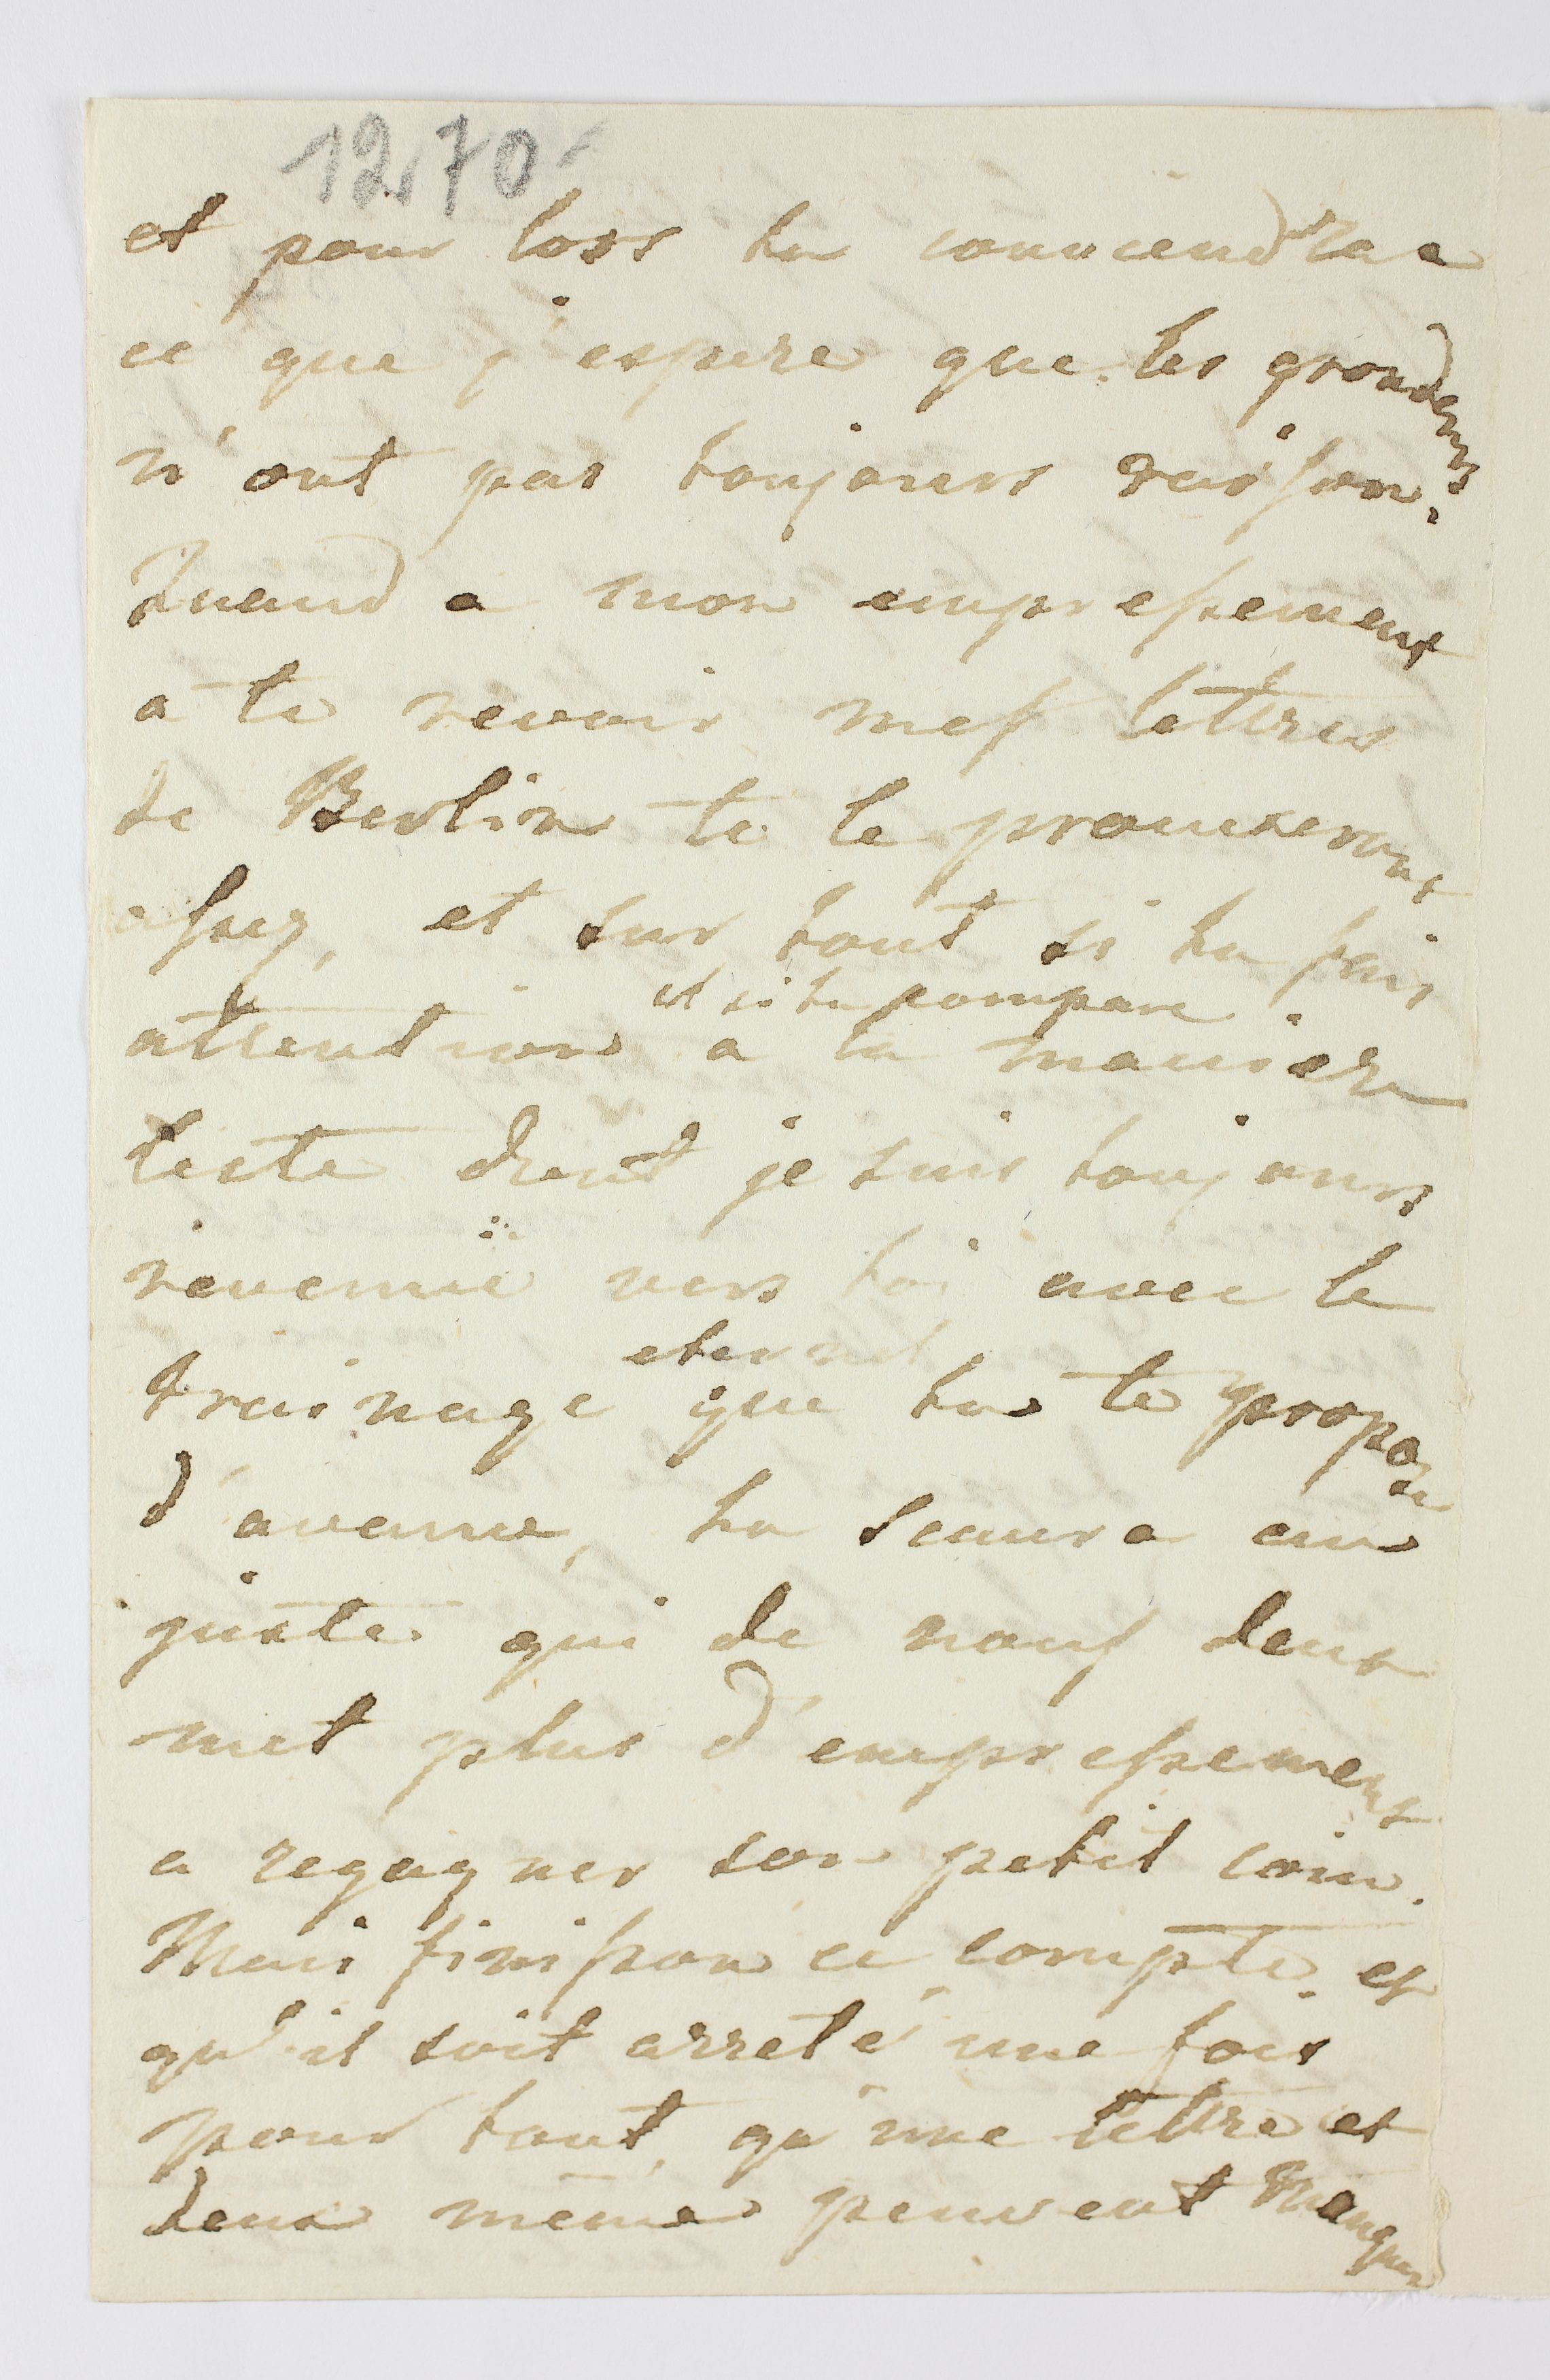 1270
et pour lors tu conviendra a
ce que j'espere que les grondeurs
n'ont pas toujours raison.
Quand a mon empressement
a te revoir mes lettres
de Berlin te le prouveront
assez, et sur tout si tu fais
et si tu compare
attention a la maniere
leste dont je suis toujours
revenuë vers toi avec le
eternel
trainage que tu te propose
d'avance, tu scaura au
juste qui de nous deux
met plus d'empressement
a regagner son petit coin.
Mais finisson ce compte. et
qu'il soit arreté une fois
pour tout, qu'une lettre et
deux meme peuvent manquer